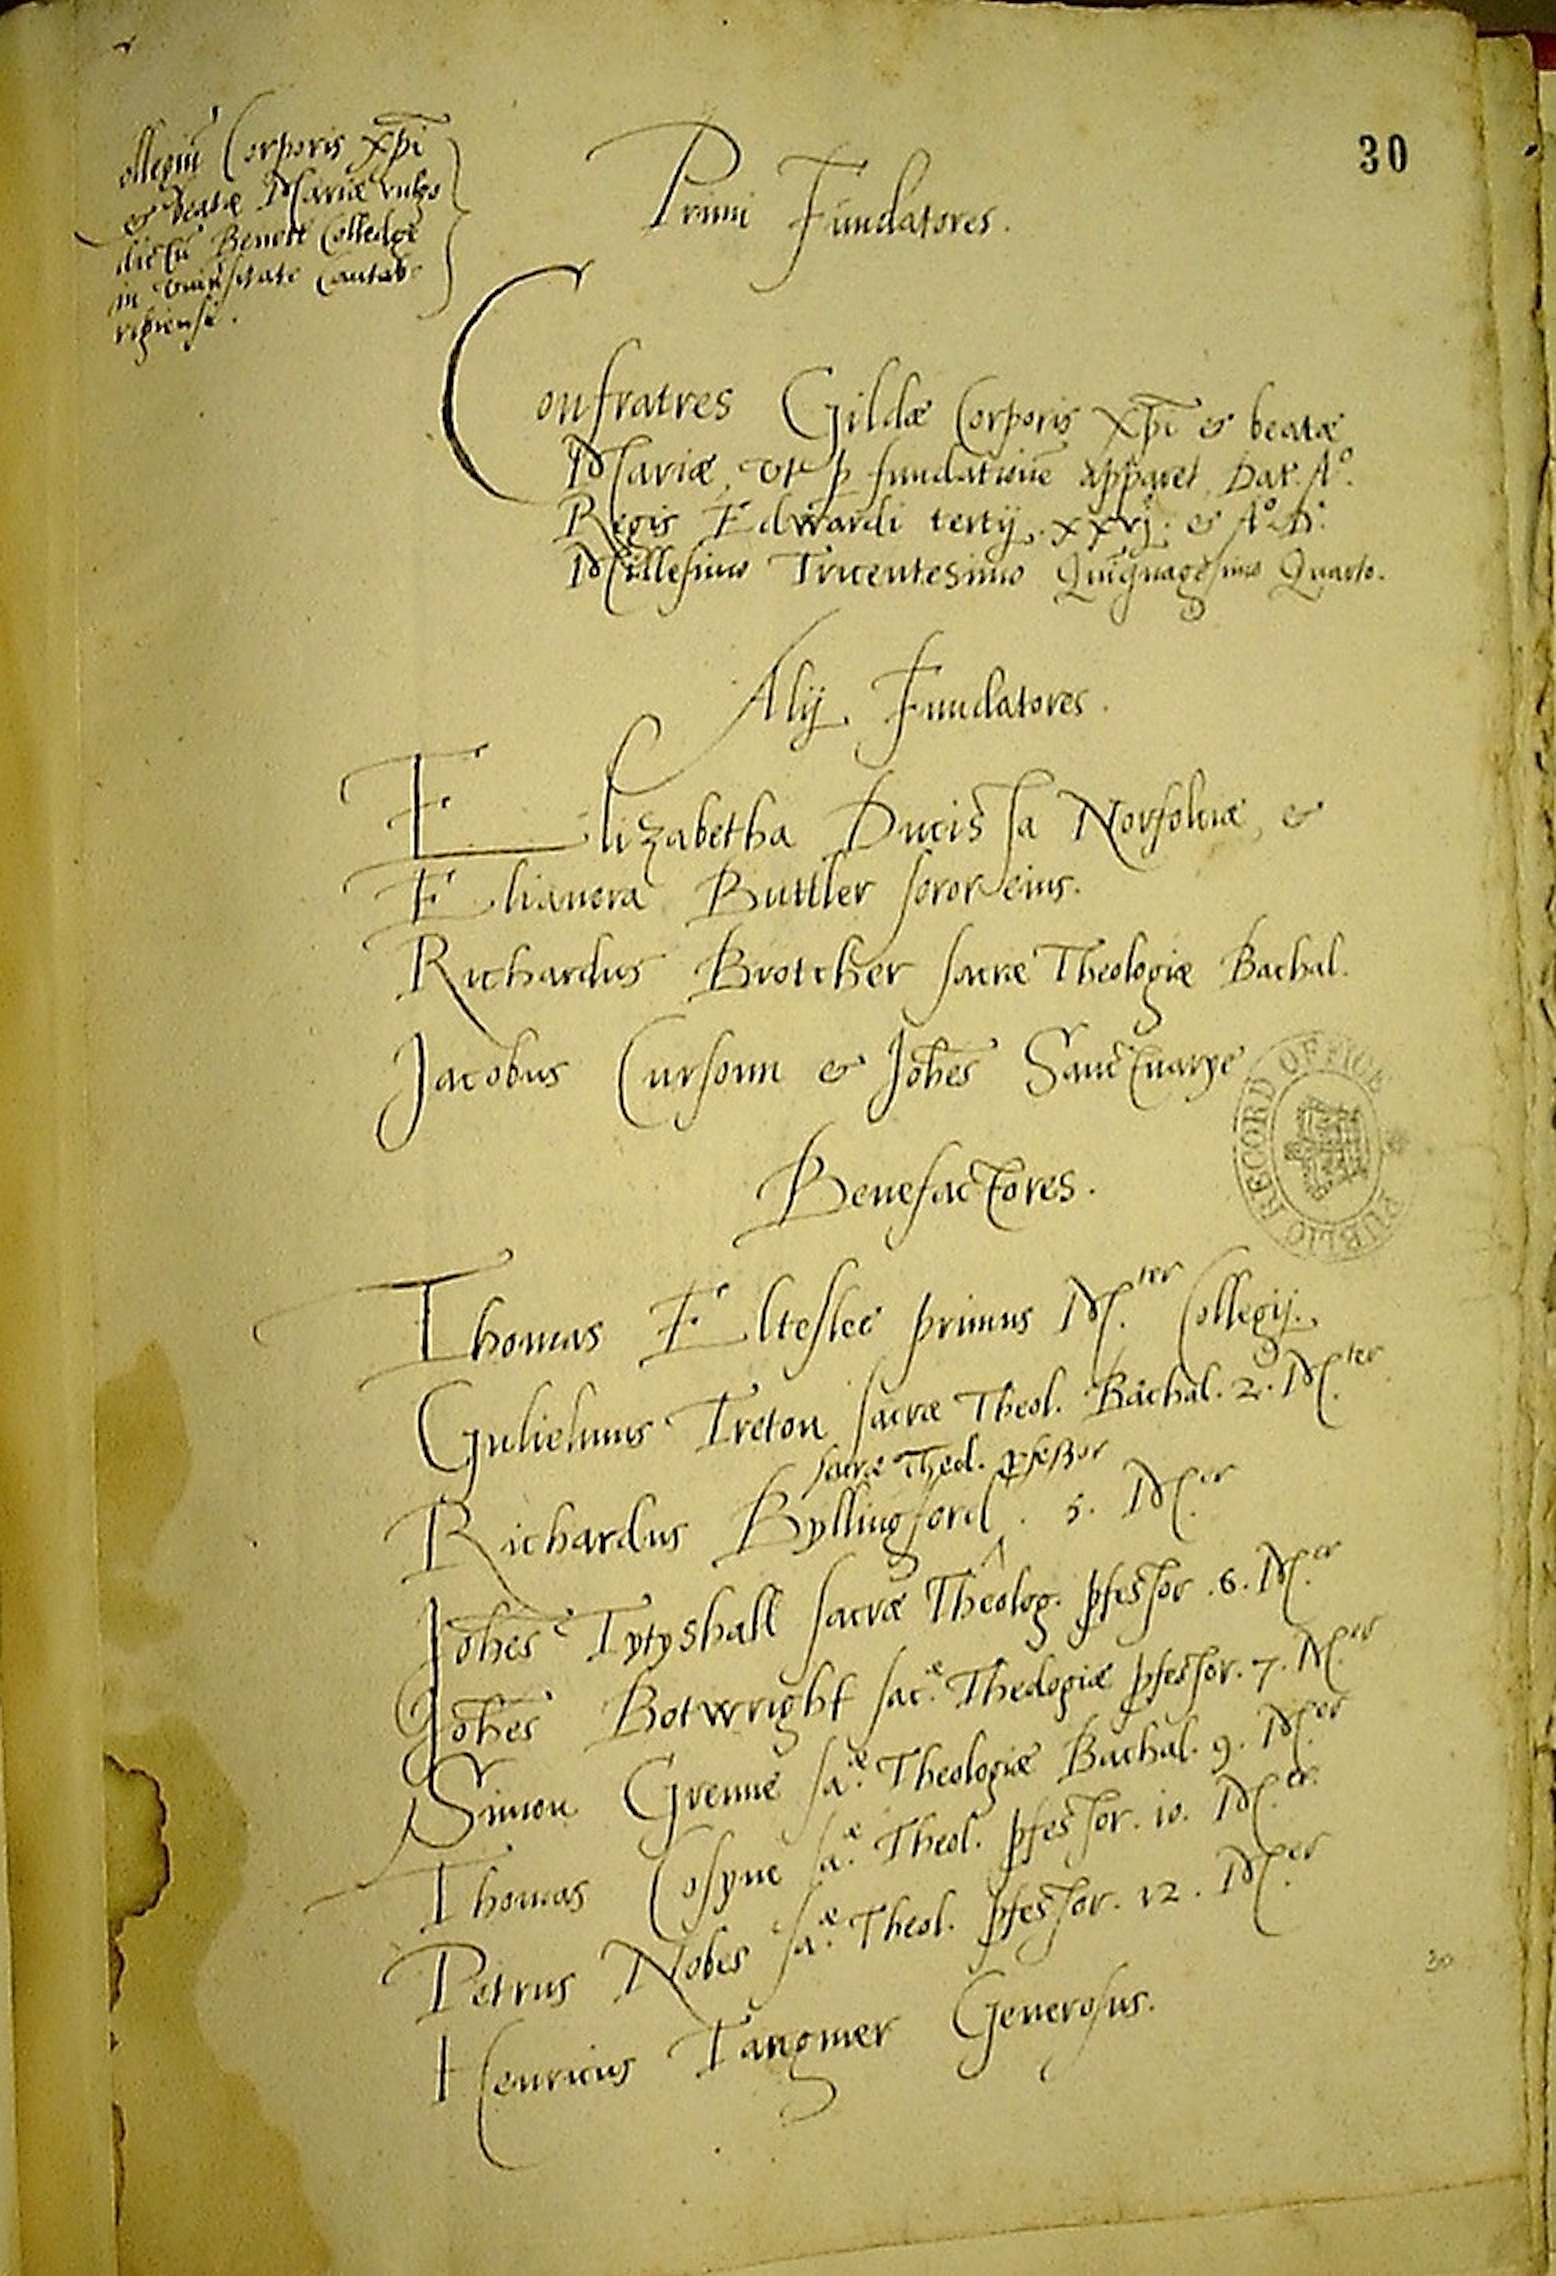 30
ollegiū Corporis xp̄i
& beatæ Mariæ vulgo
dictū Benett Colledge
in vniu'sitate Cantab-
rigiensi.
Primi Fundatores.
Confratres Gildæ Corporis Xp̄i & beatæ
Mariæ, vt p fundationē apparet, Dat. A°.
Regis Edwardi tertij. xxvj. & A°. D.
Millesimo Tricentesimo Quinquagesimo Quarto.
Alij Fundatores.
Elizabetha Ducissa Norfolciæ, &
Elianora Buttler soror eius.
Richardus Brotcher sacræ Theologiæ Bachal.
Jacobus Cursonn & Joh̄es Sanctuarye
PUBLIC RECORD OFFICE
Benefactores.
Thomas Elteslee primus M.ter Collegij.
Gulielmus Treton sacræ Theol. Bachal. 2. M.ter
sacræ Theol. pfessor
Richardus Byllingford ^. 5. M.er
Joh̄es Tytyshall sacræ Theolog. pfessor .6. M.er
Joh̄es Botwright sac.æ Theologiæ pfessor. 7. M.er
Simon Grenne sa.æ Theologiæ Bachal. 9. M.er
Thomas Cosyne sa.æ Theol. pfessor. 10. M.er
Petrus Nobes sa.æ Theol. pfessor. 12. M.er
Henricus Tangmer Generosus.
30